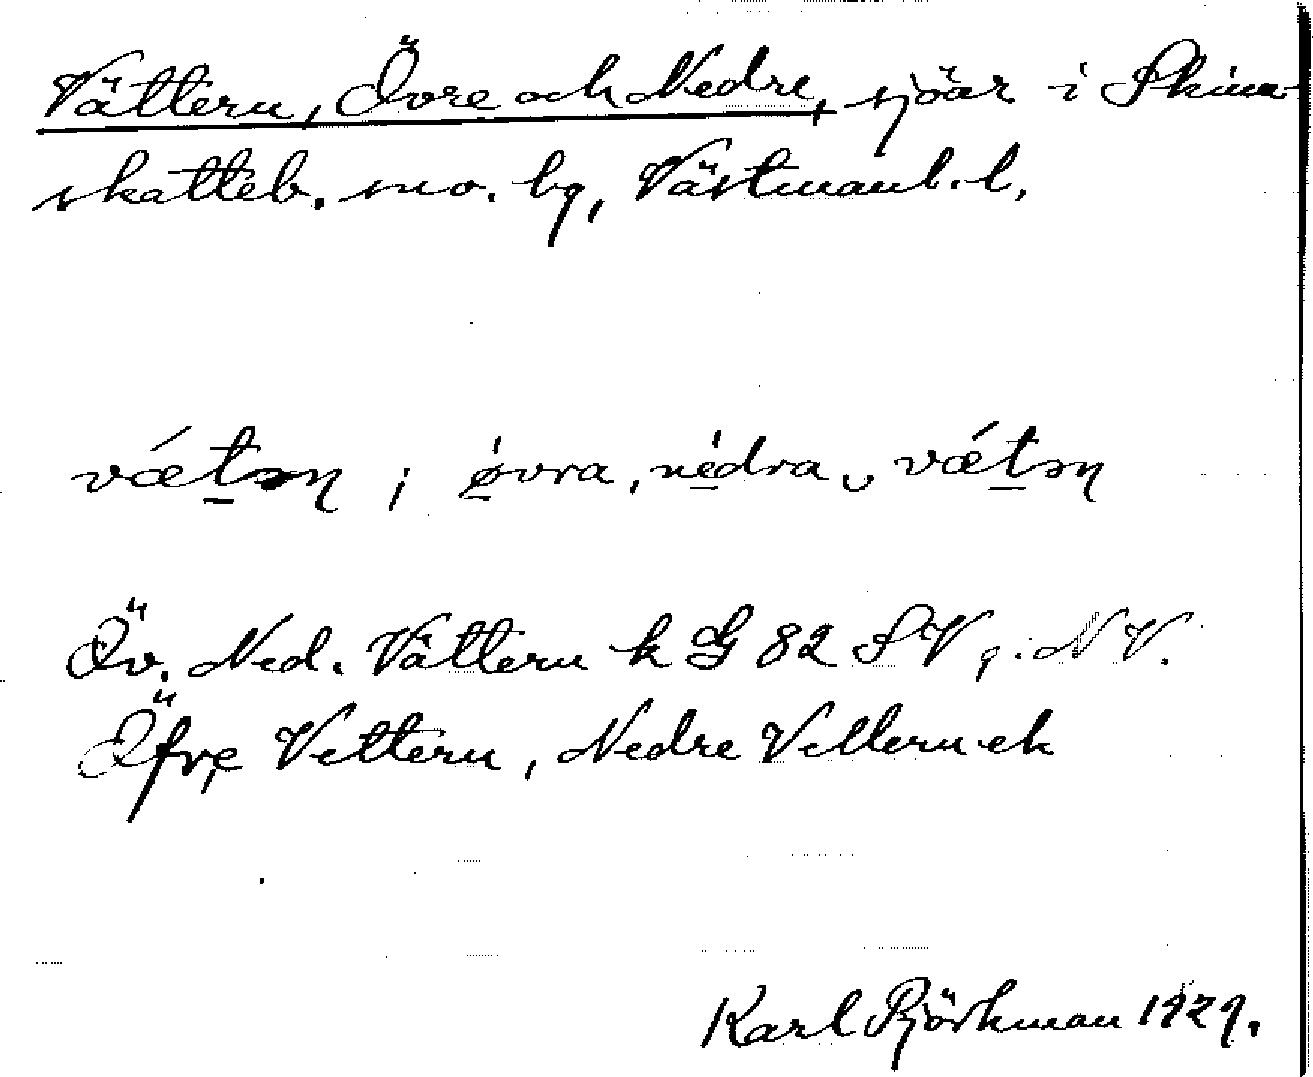 Vättern, Övre och Nedre, sjöar i Skinn-
skatteb. sno. bg, Västmanl. l.
vǽtən ; ø̀vra, nèdra ‿ vǽtən
Öv. Ned. Vättern k G 82 SV, NV.
Öfre Vettern, Nedre Vettern ek
Karl Björkman 1929.